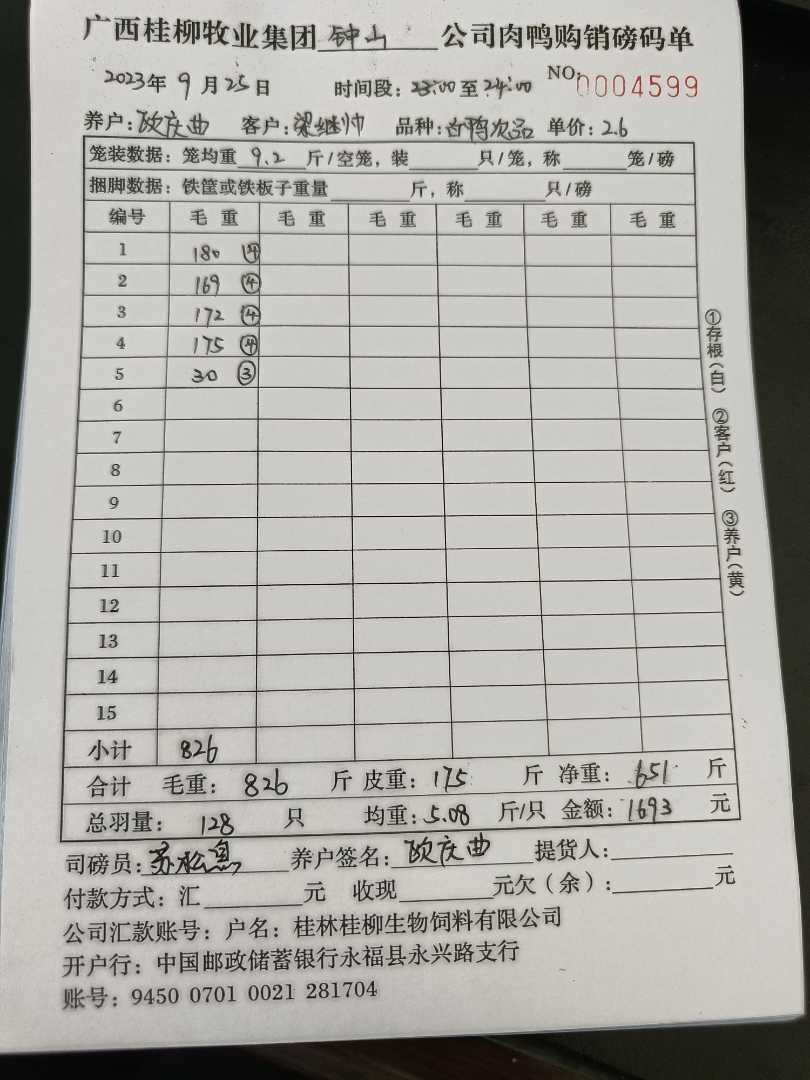 广西桂柳牧业集团 钟山 公司肉鸭购销磅码单
2023年 9 月 25 日 时间段: 23:00 至 24:00 NO: 0004599
养户: 欧庆曲 客户: 梁继帅 品种: 白鸭次品 单价: 2.6
笼装数据: 笼均重 9.2 斤/空笼, 装 只/笼, 称 笼/磅
捆脚数据: 铁筐或铁板子重量 斤, 称 只/磅
编号 毛 重 毛 重 毛 重 毛 重 毛 重 毛 重
1 180 ④
2 169 ④
3 172 ④
4 175 ④
5 30 ③
6
7
8
9
10
11
12
13
14
15
小计 826
合计 毛重: 826 斤 皮重: 175 斤 净重: 651 斤
总羽量: 128 只 均重: 5.08 斤/只 金额: 1693 元
司磅员: 苏松 养户签名: 欧庆曲 提货人:
付款方式: 汇 元 收现 元欠(余): 元
公司汇款账号: 户名: 桂林桂柳生物饲料有限公司
开户行: 中国邮政储蓄银行永福县永兴路支行
账号: 9450 0701 0021 281704
①存根(白) ②客户(红) ③养户(黄)